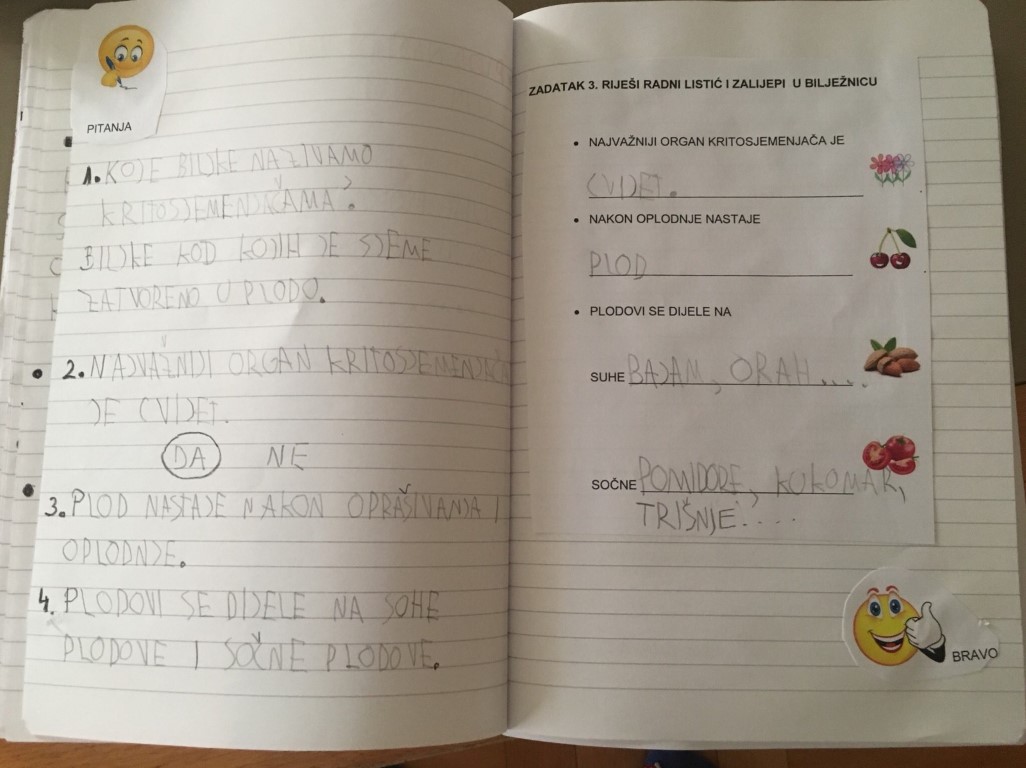 PITANJA
1. KOJE BILJKE NAZIVAMO
KRITOSJEMENJAČAMA?
BILJKE KOD KOJIH JE SJEME
ZATVORENO U PLODO.
2. NAJVAŽNIJI ORGAN KRITOSJEMENJAČA
JE CVIJET.
DA NE
3. PLOD NASTAJE NAKON OPRAŠIVANJA I
OPLODNJE.
4. PLODOVI SE DIJELE NA SOHE
PLODOVE I SOČNE PLODOVE.
ZADATAK 3. RIJEŠI RADNI LISTIĆ I ZALIJEPI U BILJEŽNICU
• NAJVAŽNIJI ORGAN KRITOSJEMENJAČA JE
CVIJET.
• NAKON OPLODNJE NASTAJE
PLOD
• PLODOVI SE DIJELE NA
SUHE BAJAM, ORAH....
SOČNE POMIDORE, KUKOMAR,
TRIŠNJE....
BRAVO